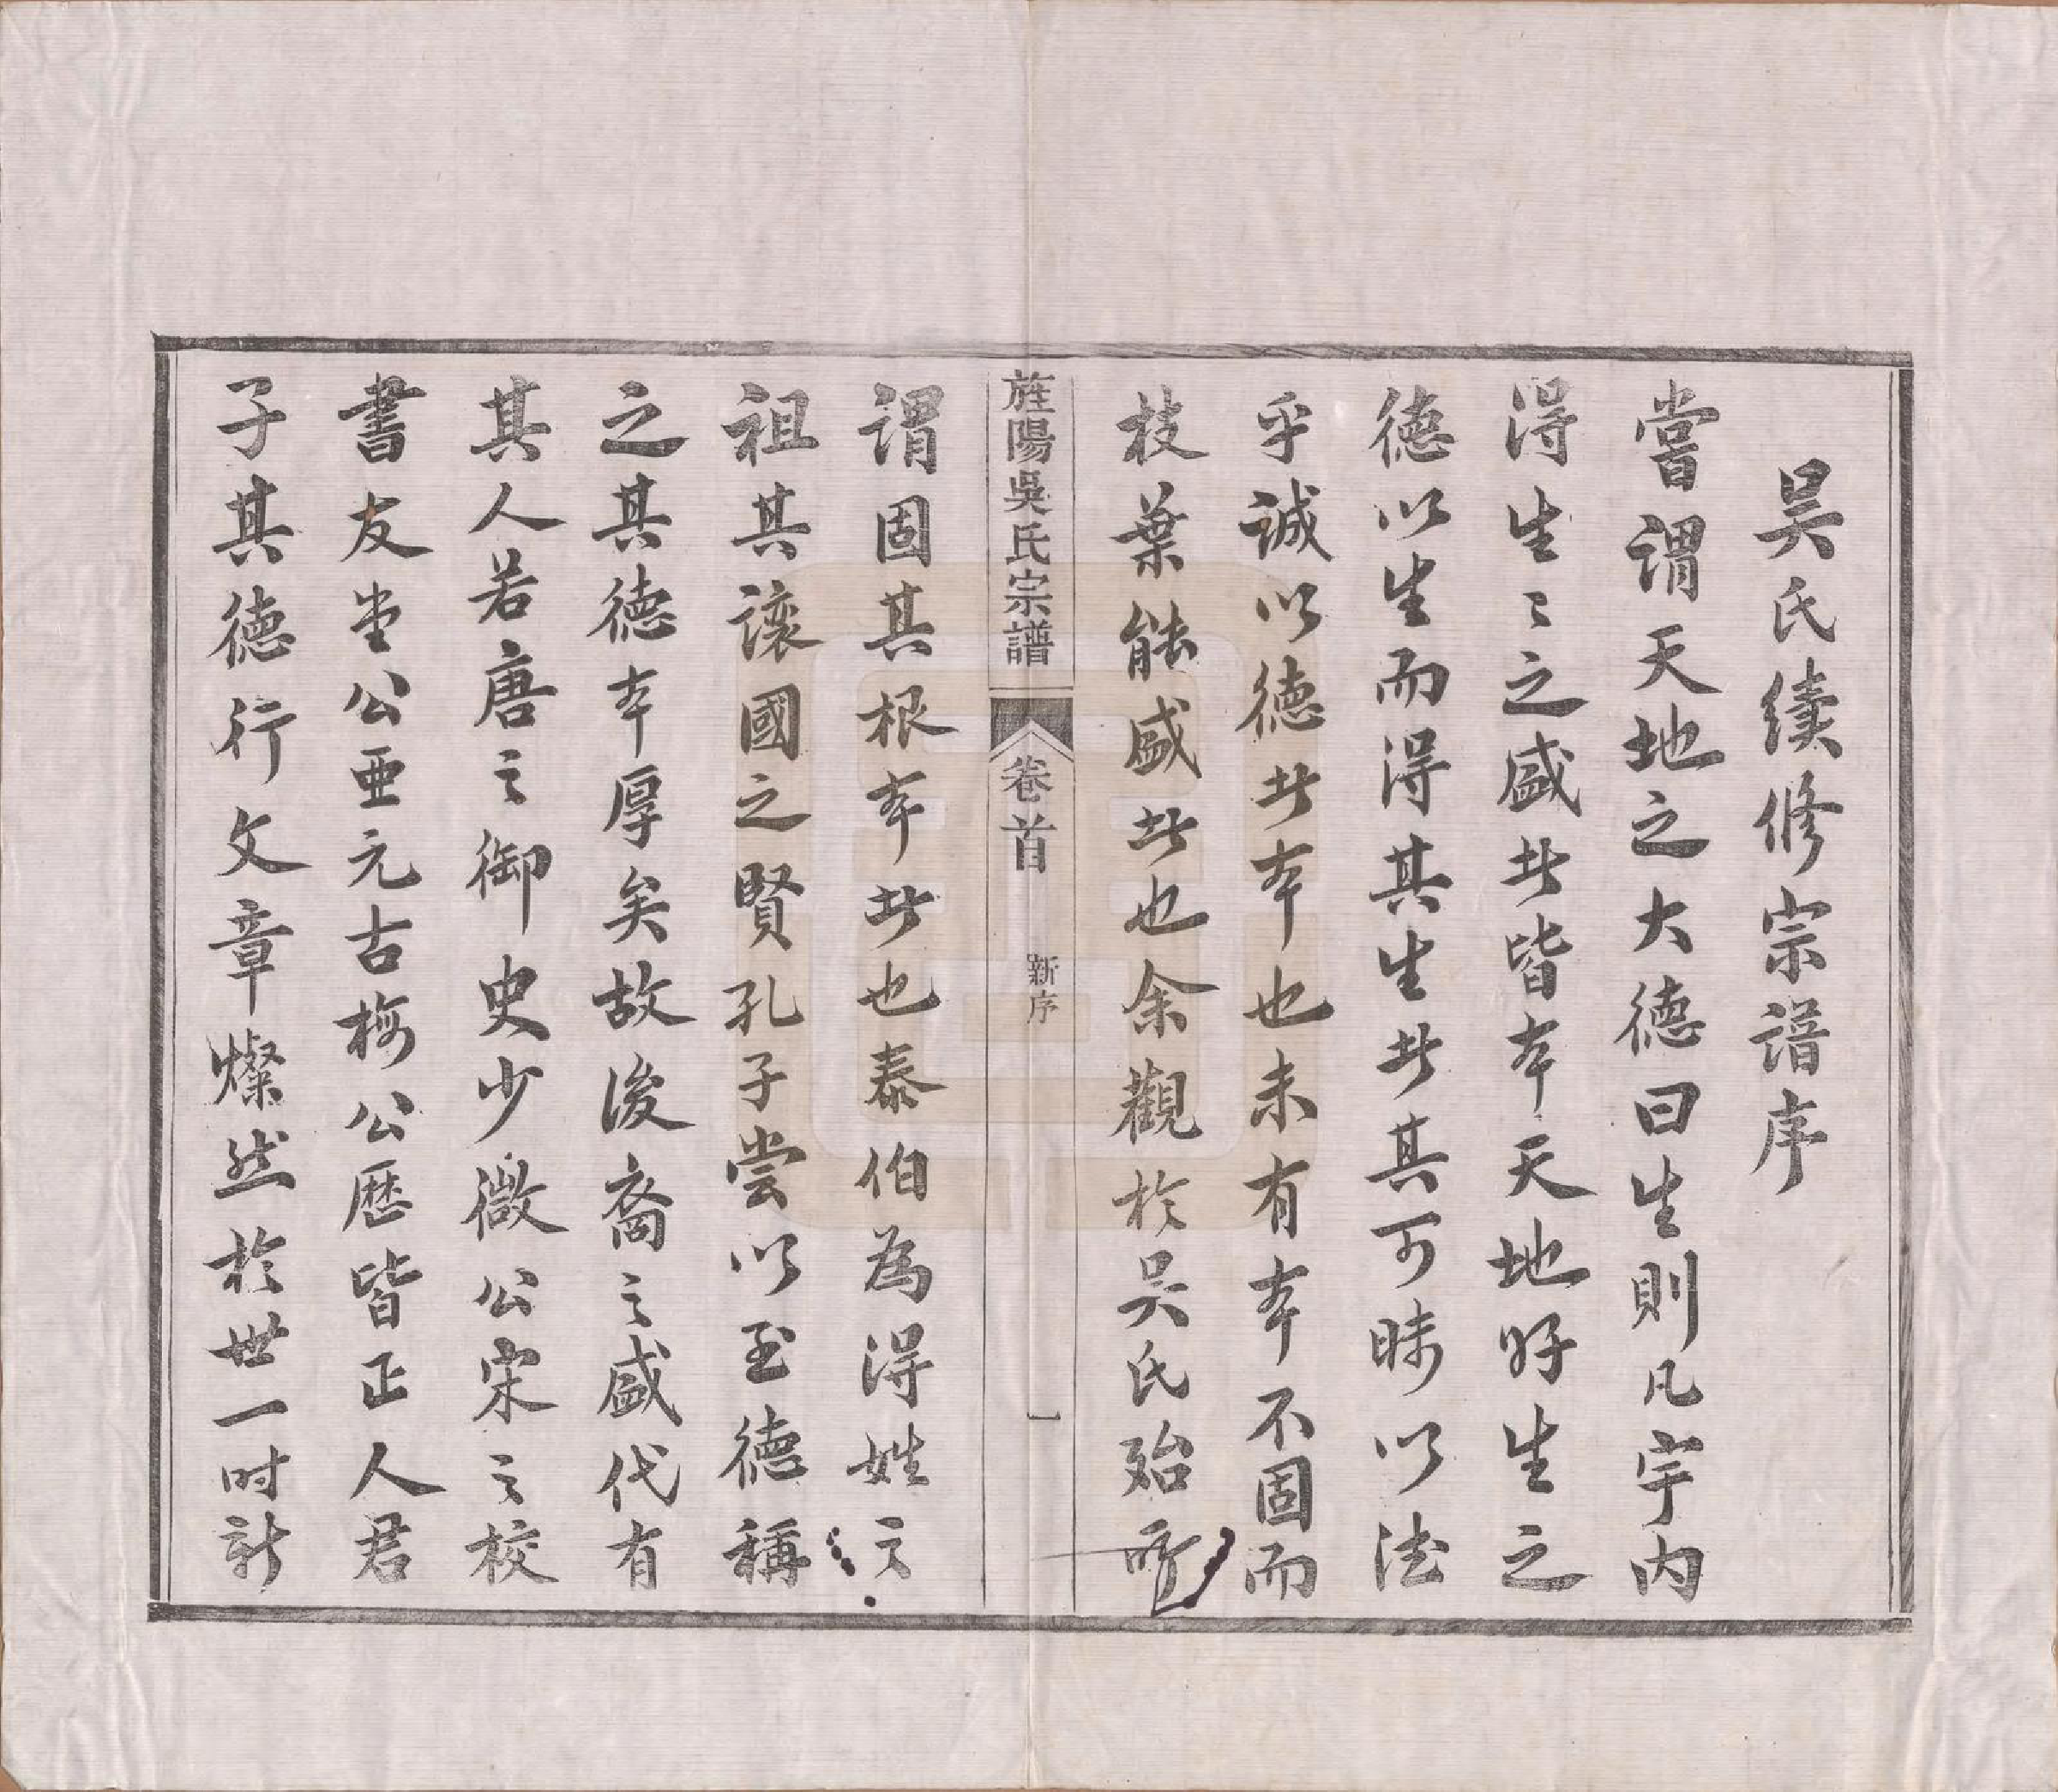 吴氏續修宗譜序
嘗謂天地之大德曰生則凡宇内
得生〻之盛此皆本天地好生之
德以生而得其生此其可昧以法
乎誠以德此本也未有本不固而
枝葉能盛此也余觀於吴氏殆所
旌陽吳氏宗譜
卷首
新序
一
謂固其根本此也泰伯為得姓之
祖其讓國之賢孔子嘗以至德稱
之其德本厚矣故後裔之盛代有
其人若唐之御史少微公宋之校
書友堂公亜元古梅公歴皆正人君
子其德行文章燦然於世一时彰